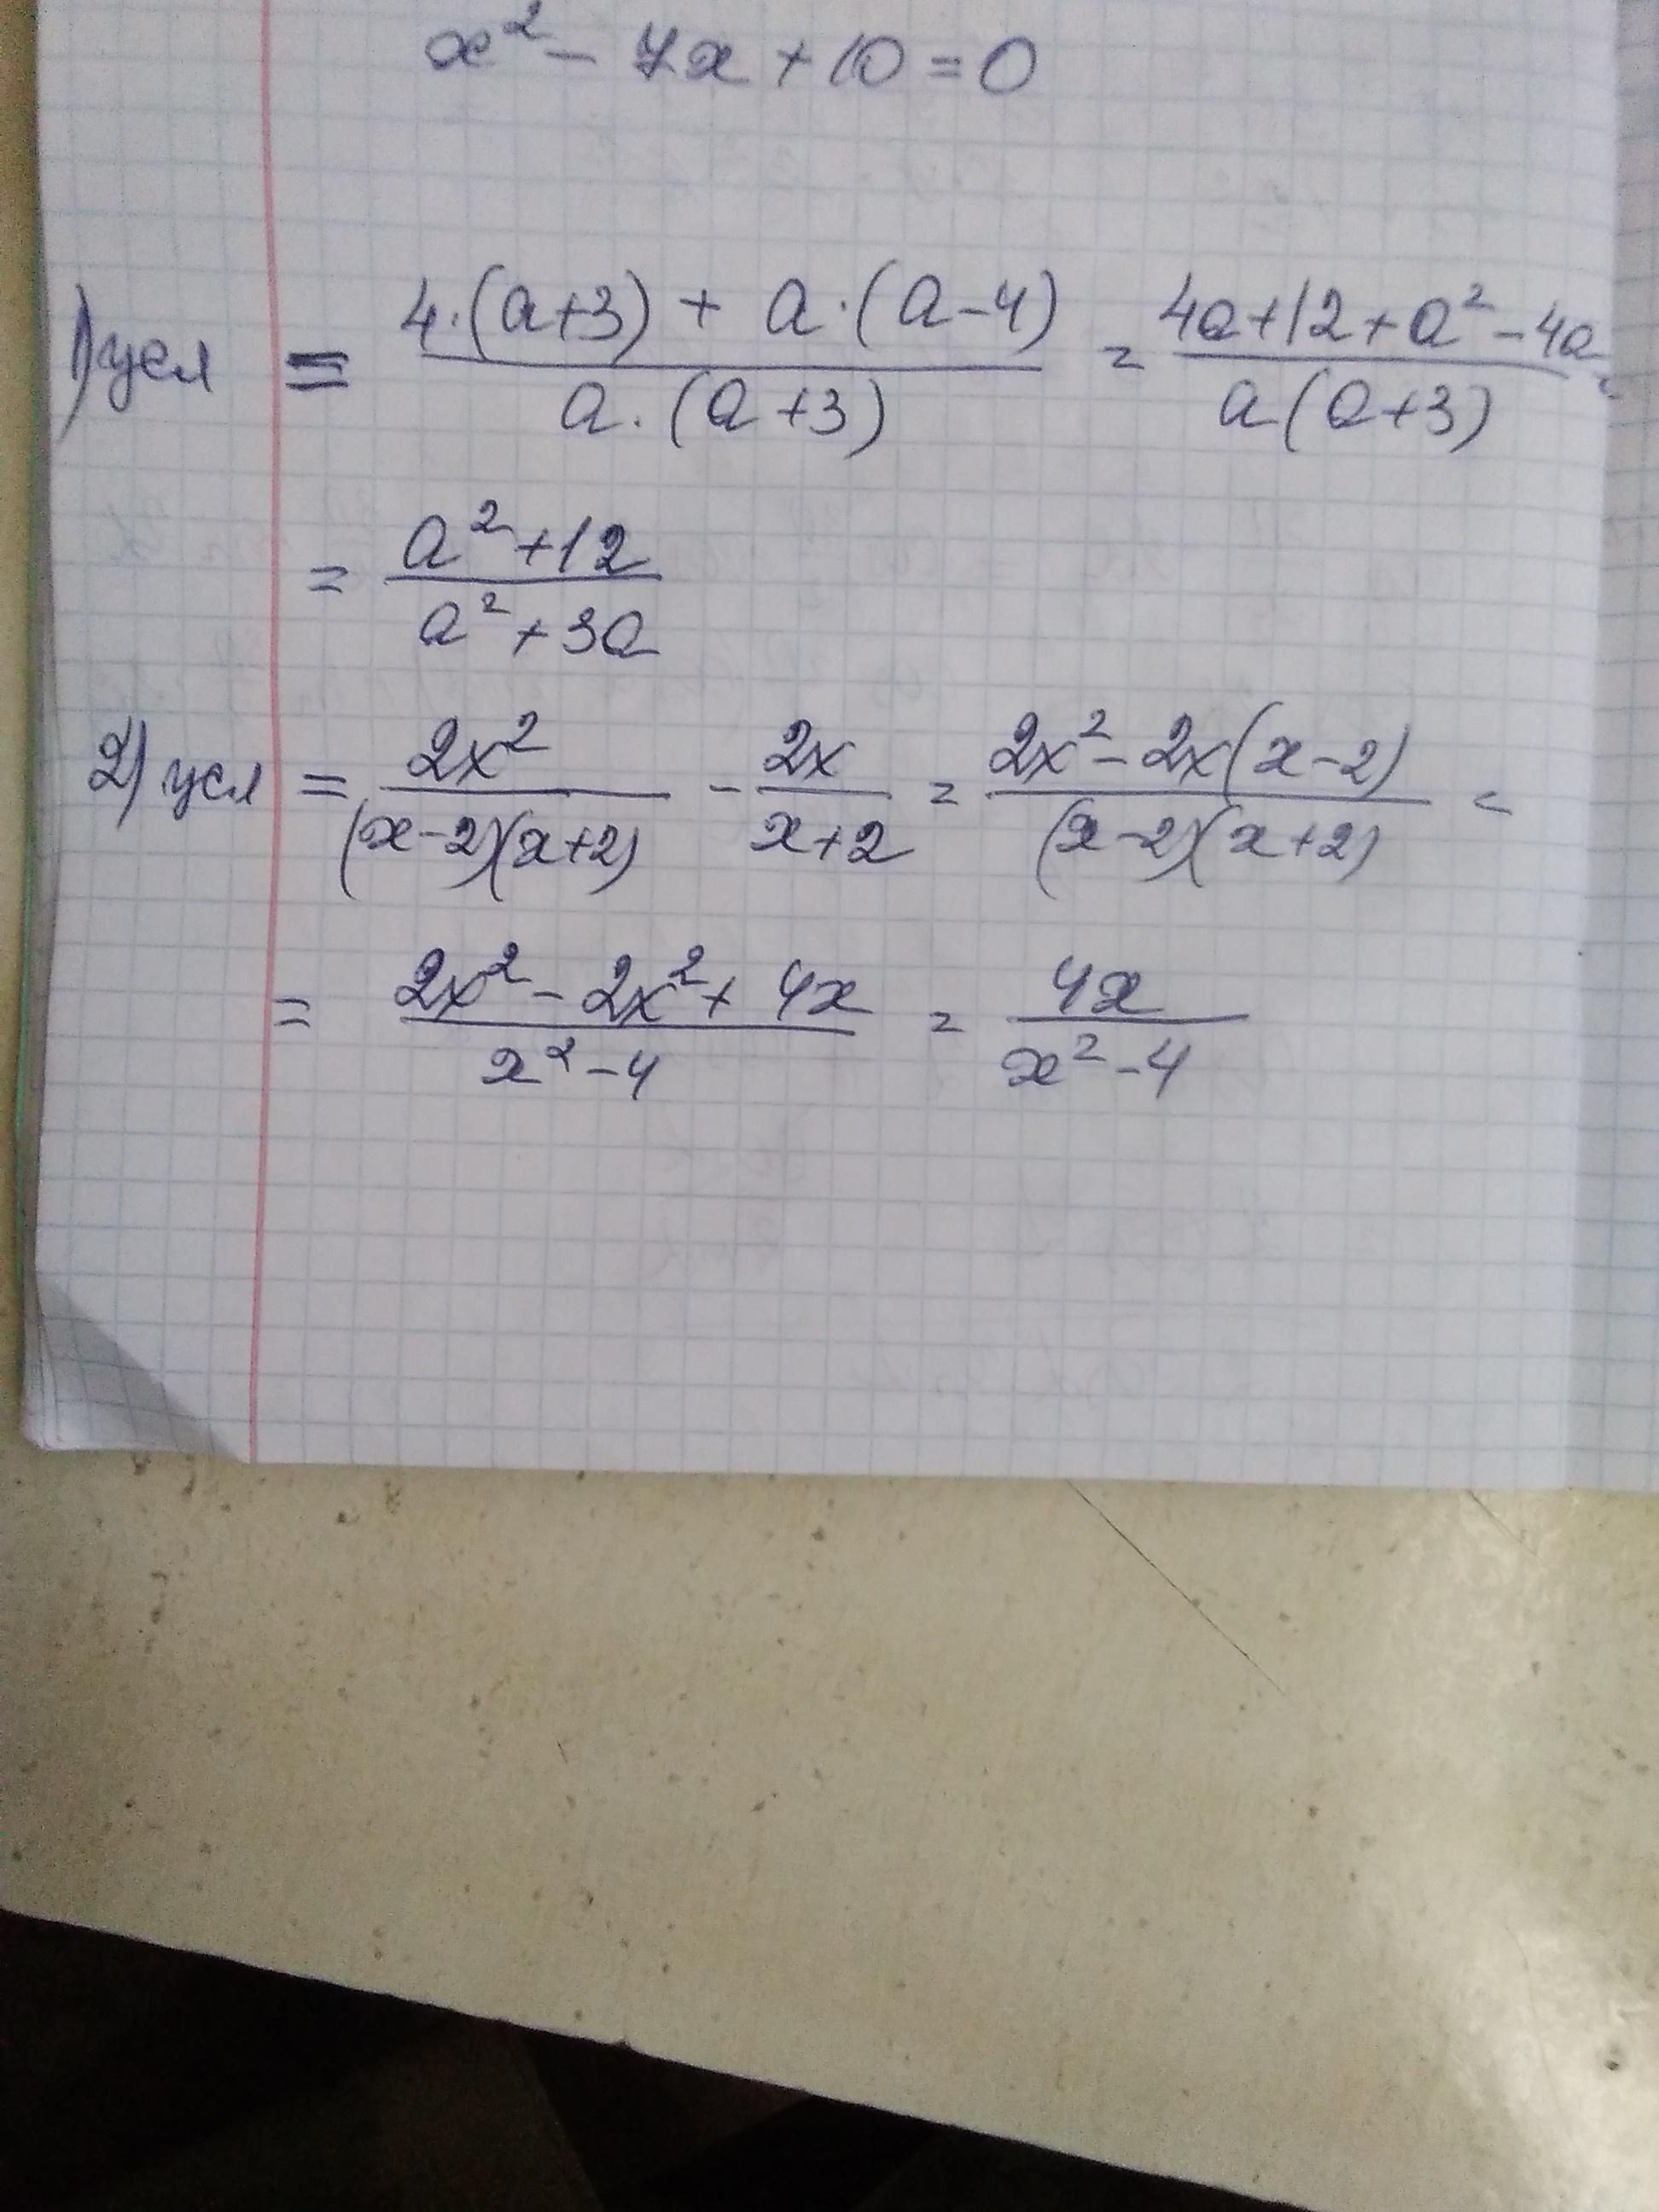 x² - 7x + 10 = 0
1) усл = 4·(a+3) + a·(a-4) / a·(a+3) = 4a+12+a²-4a / a(a+3) =
= a²+12 / a²+3a
2) усл = 2x² / (x-2)(x+2) - 2x / x+2 = 2x²-2x(x-2) / (x-2)(x+2) =
= 2x²-2x²+4x / x²-4 = 4x / x²-4